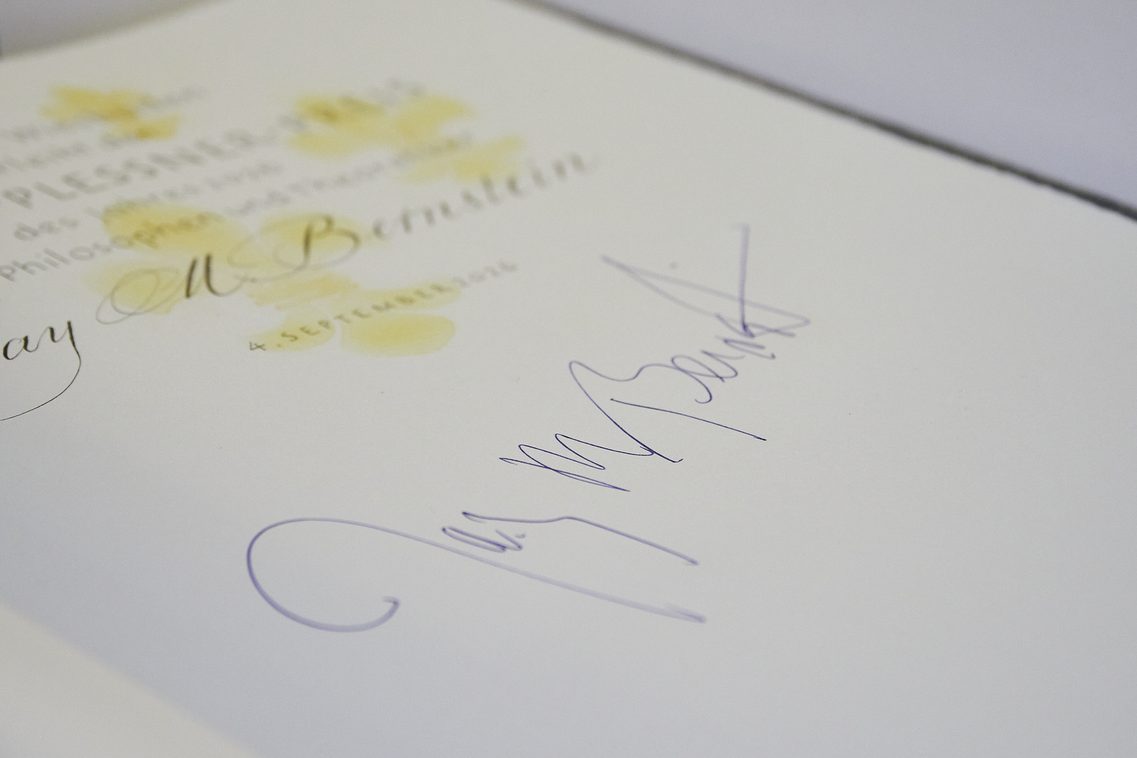 PLESSNER-PREIS
des Jahres 2026
Philosophen und Theoretiker
ay M. Bernstein
4. SEPTEMBER 2026
Jay M Bernst